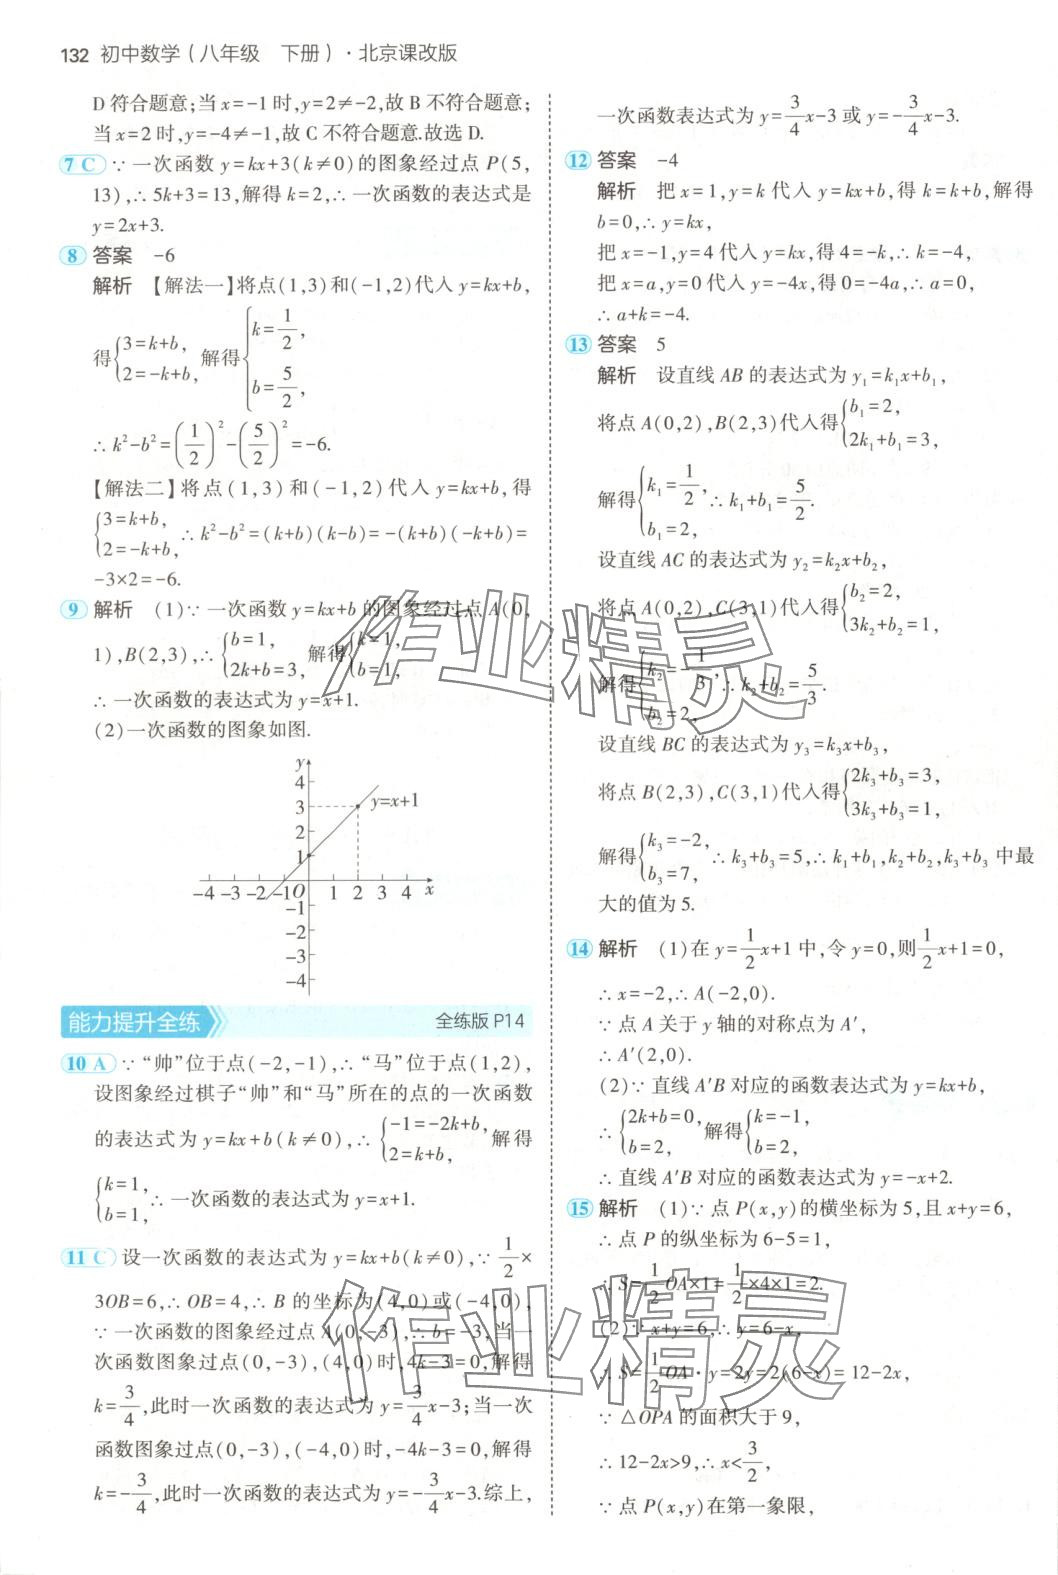 132 初中数学(八年级 下册)·北京课改版
D符合题意;当x=-1时,y=2≠-2,故B不符合题意;
当x=2时,y=-4≠-1,故C不符合题意.故选D.
7 C ∵一次函数y=kx+3(k≠0)的图象经过点P(5,
13),∴5k+3=13,解得k=2,∴一次函数的表达式是
y=2x+3.
8 答案 -6
解析 【解法一】将点(1,3)和(-1,2)代入y=kx+b,
得{3=k+b, 2=-k+b, 解得{k=1/2, b=5/2,
∴k²-b²=(1/2)²-(5/2)²=-6.
【解法二】将点(1,3)和(-1,2)代入y=kx+b,得
{3=k+b, 2=-k+b, ∴k²-b²=(k+b)(k-b)=-(k+b)(-k+b)=
-3×2=-6.
9 解析 (1)∵一次函数y=kx+b的图象经过点A(0,
1),B(2,3),∴{b=1, 2k+b=3, 解得{k=1, b=1,
∴一次函数的表达式为y=x+1.
(2)一次函数的图象如图.
y
4
3
2
1
y=x+1
-4 -3 -2 -1 O 1 2 3 4 x
-1
-2
-3
-4
能力提升全练 全练版P14
10 A ∵“帅”位于点(-2,-1),∴“马”位于点(1,2),
设图象经过棋子“帅”和“马”所在的点的一次函数
的表达式为y=kx+b(k≠0),∴{-1=-2k+b, 2=k+b, 解得
{k=1, b=1, ∴一次函数的表达式为y=x+1.
11 C 设一次函数的表达式为y=kx+b(k≠0),∵1/2×
3OB=6,∴OB=4,∴B的坐标为(4,0)或(-4,0),
∵一次函数的图象经过点A(0,-3),∴b=-3,当一
次函数图象过点(0,-3),(4,0)时,4k-3=0,解得
k=3/4,此时一次函数的表达式为y=3/4x-3;当一次
函数图象过点(0,-3),(-4,0)时,-4k-3=0,解得
k=-3/4,此时一次函数的表达式为y=-3/4x-3.综上,
一次函数表达式为y=3/4x-3或y=-3/4x-3.
12 答案 -4
解析 把x=1,y=k代入y=kx+b,得k=k+b,解得
b=0,∴y=kx,
把x=-1,y=4代入y=kx,得4=-k,∴k=-4,
把x=a,y=0代入y=-4x,得0=-4a,∴a=0,
∴a+k=-4.
13 答案 5
解析 设直线AB的表达式为y₁=k₁x+b₁,
将点A(0,2),B(2,3)代入得{b₁=2, 2k₁+b₁=3,
解得{k₁=1/2, b₁=2, ∴k₁+b₁=5/2.
设直线AC的表达式为y₂=k₂x+b₂,
将点A(0,2),C(3,1)代入得{b₂=2, 3k₂+b₂=1,
解得{k₂=-1/3, b₂=2, ∴k₂+b₂=5/3.
设直线BC的表达式为y₃=k₃x+b₃,
将点B(2,3),C(3,1)代入得{2k₃+b₃=3, 3k₃+b₃=1,
解得{k₃=-2, b₃=7, ∴k₃+b₃=5,∴k₁+b₁,k₂+b₂,k₃+b₃中最
大的值为5.
14 解析 (1)在y=1/2x+1中,令y=0,则1/2x+1=0,
∴x=-2,∴A(-2,0).
∵点A关于y轴的对称点为A′,
∴A′(2,0).
(2)∵直线A′B对应的函数表达式为y=kx+b,
∴{2k+b=0, b=2, 解得{k=-1, b=2,
∴直线A′B对应的函数表达式为y=-x+2.
15 解析 (1)∵点P(x,y)的横坐标为5,且x+y=6,
∴点P的纵坐标为6-5=1,
∴S=1/2OA×1=1/2×4×1=2.
(2)∵x+y=6,∴y=6-x,
∴S=1/2OA·y=2y=2(6-x)=12-2x,
∵△OPA的面积大于9,
∴12-2x>9,∴x<3/2,
∵点P(x,y)在第一象限,
作业精灵
作业精灵